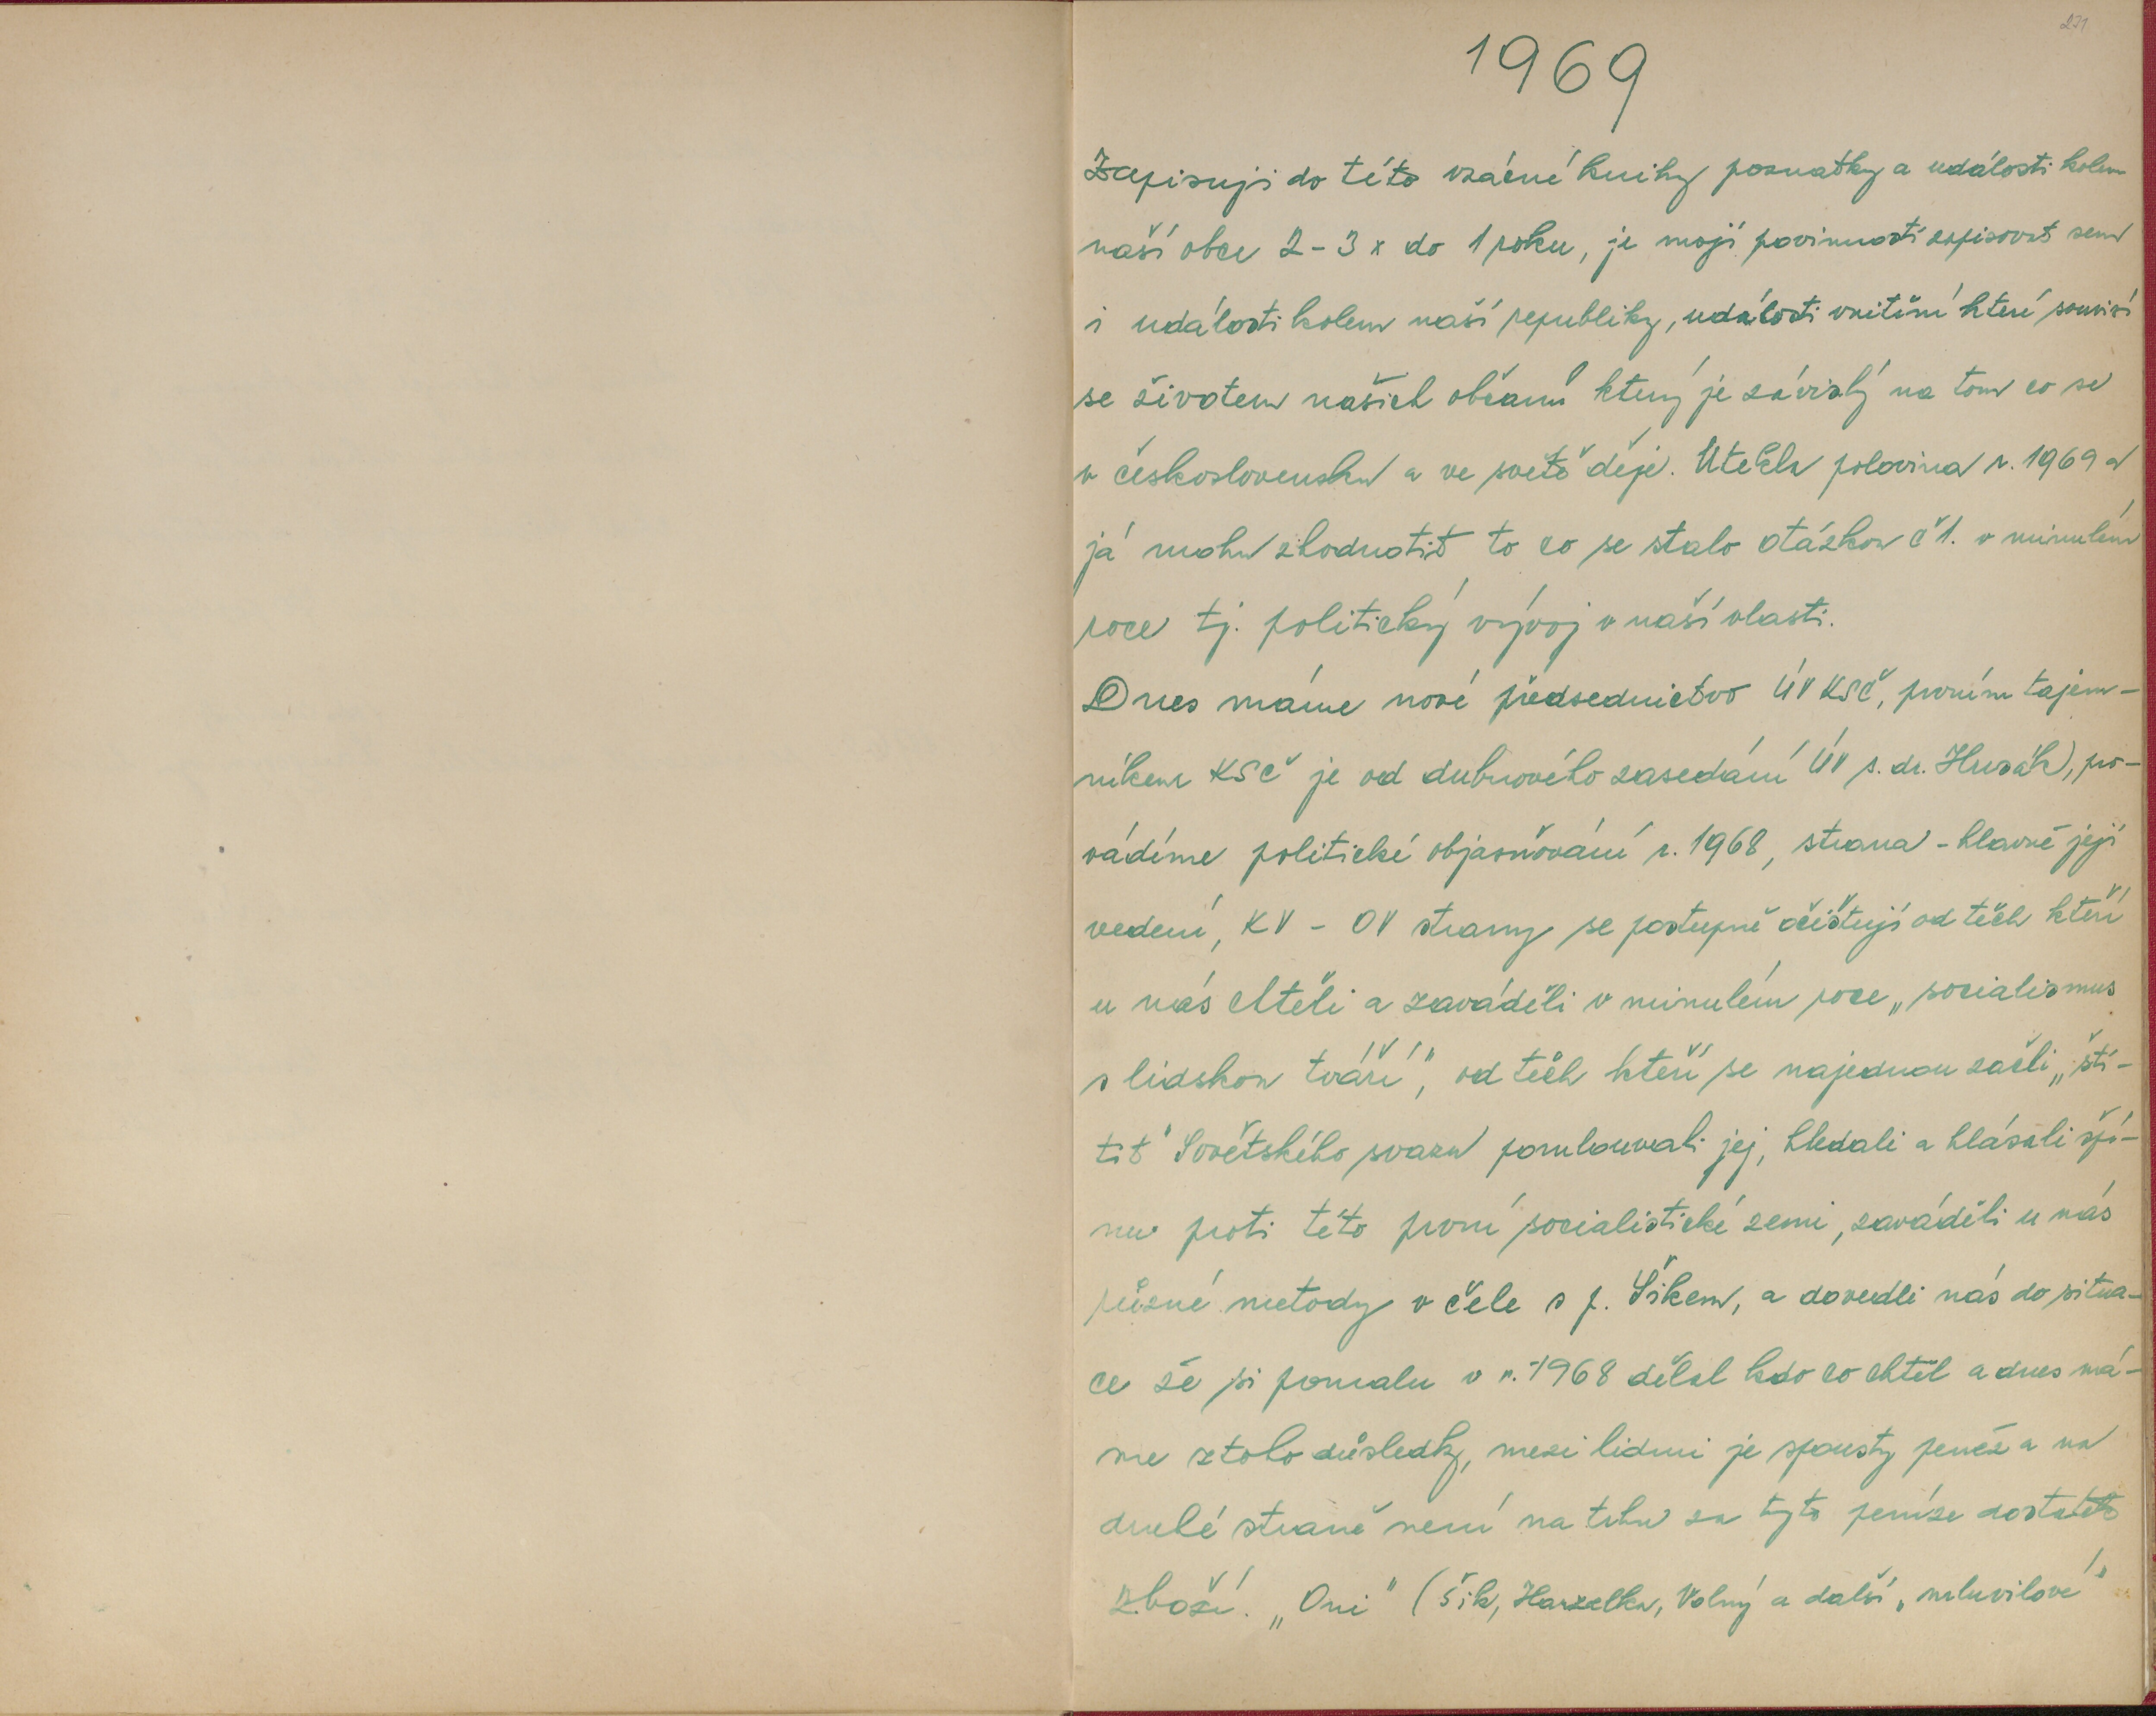 231
1969
Zapisuji do této vzácné knihy poznatky a události kolem
naší obce 2-3 x do 1 roku, je mojí povinností zapisovat sem
i události kolem naší republiky, události vnitřní které souvisí
se životem našich občanů který je závislý na tom co se
v československu a ve světě děje. Utekla polovina r. 1969 a
já mohu zhodnotit to co se stalo otázkou č 1. v minulém
roce tj. politický vývoj v naší vlasti.
Dnes máme nové předsednictvo ÚV KSČ, prvním tajem-
níkem KSČ je od dubnového zasedání ÚV s. dr. Husák), pro-
vádíme politické objasňování r. 1968, strana - hlavně její
vedení, KV - OV strany se postupně očišťují od těch kteří
u nás chtěli a zaváděli v minulém roce „socialismus
s lidskou tváří", od těch kteří se najednou začli „ští-
tit" Sovětského svazu pomlouvali jej, hledali a hlásali špí-
nu proti této první socialistické zemi, zaváděli u nás
různé metody v čele s p. Šikem, a dovedli nás do situa-
ce že si pomalu v r. 1968 dělal kdo co chtěl a dnes má-
me z toho důsledky, mezi lidmi je spousty peněz a na
druhé straně není na trhu za tyto peníze dostatek
zboží. „Oni" (Šik, Hanzelka, Volný a další „mluvilové"